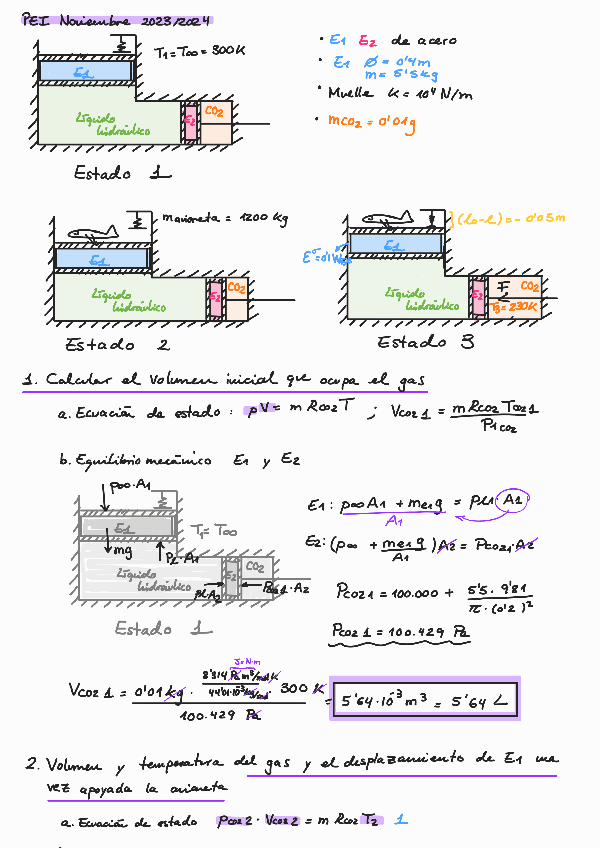 PEI Noviembre 2023/2024
T1=T∞=300K
E1
Líquido hidráulico
E2
CO2
Estado 1
• E1 E2 de acero
• E1 Ø = 0'4m
m = 5'5kg
• Muelle K = 10⁴ N/m
• mCO2 = 0'01g
mavioneta = 1200 kg
E1
Líquido hidráulico
E2
CO2
Estado 2
(l0-l) = -0'05m
E1
Líquido hidráulico
E2
F
CO2
T3=230K
Estado 3
1. Calcular el volumen inicial que ocupa el gas
a. Ecuación de estado: pV = m RCO2 T ; VCO2 1 = m RCO2 TCO2 1 / P1CO2
b. Equilibrio mecánico E1 y E2
p∞·A1
E1
T1=T∞
mg
PL·A1
Líquido hidráulico
PL·A2
E2
CO2
PCO2 1·A2
Estado 1
E1: p∞A1 + mE1g = PL1·A1
A1
E2: (p∞ + mE1g / A1) A2 = PCO2 1·A2
PCO2 1 = 100.000 + 5'5 · 9'81 / π·(0'2)²
PCO2 1 = 100.429 Pa
J=N·m
VCO2 1 = 0'01 kg · 8'314 Pa m³/mol K / 44'01·10⁻³ kg/mol · 300 K / 100.429 Pa = 5'64·10⁻³ m³ = 5'64 L
2. Volumen y temperatura del gas y el desplazamiento de E1 una
vez apoyada la avioneta
a. Ecuación de estado PCO2 2 · VCO2 2 = m RCO2 T2 1